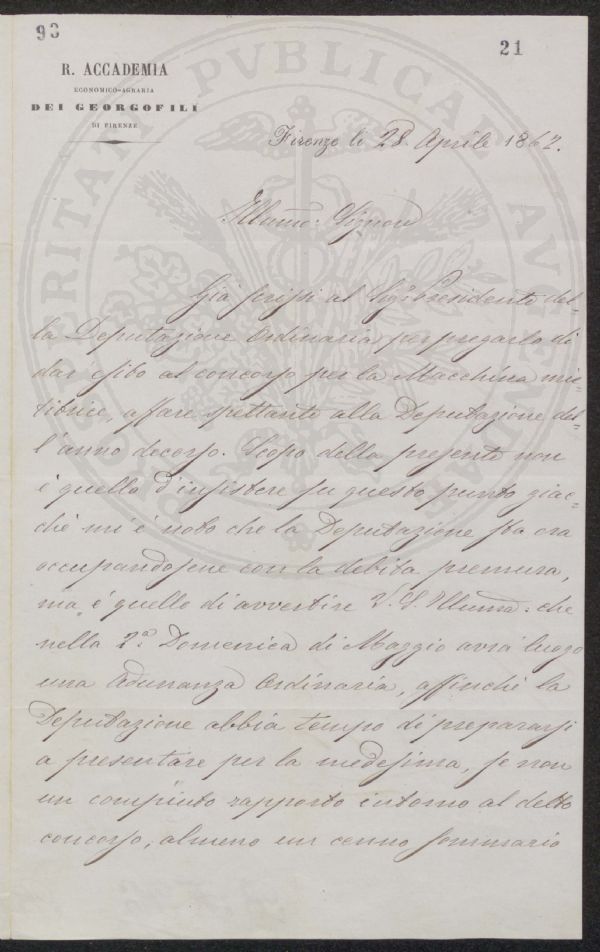 93
21
R. ACCADEMIA
ECONOMICO-AGRARIA
DEI GEORGOFILI
DI FIRENZE
Firenze li 28. Aprile 1862.
Illumo: Signore
Già scrissi al Sigr Presidente del-
la Deputazione Ordinaria per pregarlo di
dar esito al concorso per la Macchina mie-
titrice, affare spettante alla Deputazione del-
l'anno decorso. Scopo della presente non
è quello d'insistere su questo punto giac-
chè mi è noto che la Deputazione sta ora
occupandosene con la debita premura,
ma è quello di avvertire V. S. Illuma: che
nella 2a Domenica di Maggio avrà luogo
una Adunanza Ordinaria, affinchè la
Deputazione abbia tempo di prepararsi
a presentare per la medesima, se non
un compiuto rapporto intorno al detto
concorso, almeno un cenno sommario
PROSPERITATI PUBLICAE AUGENDAE